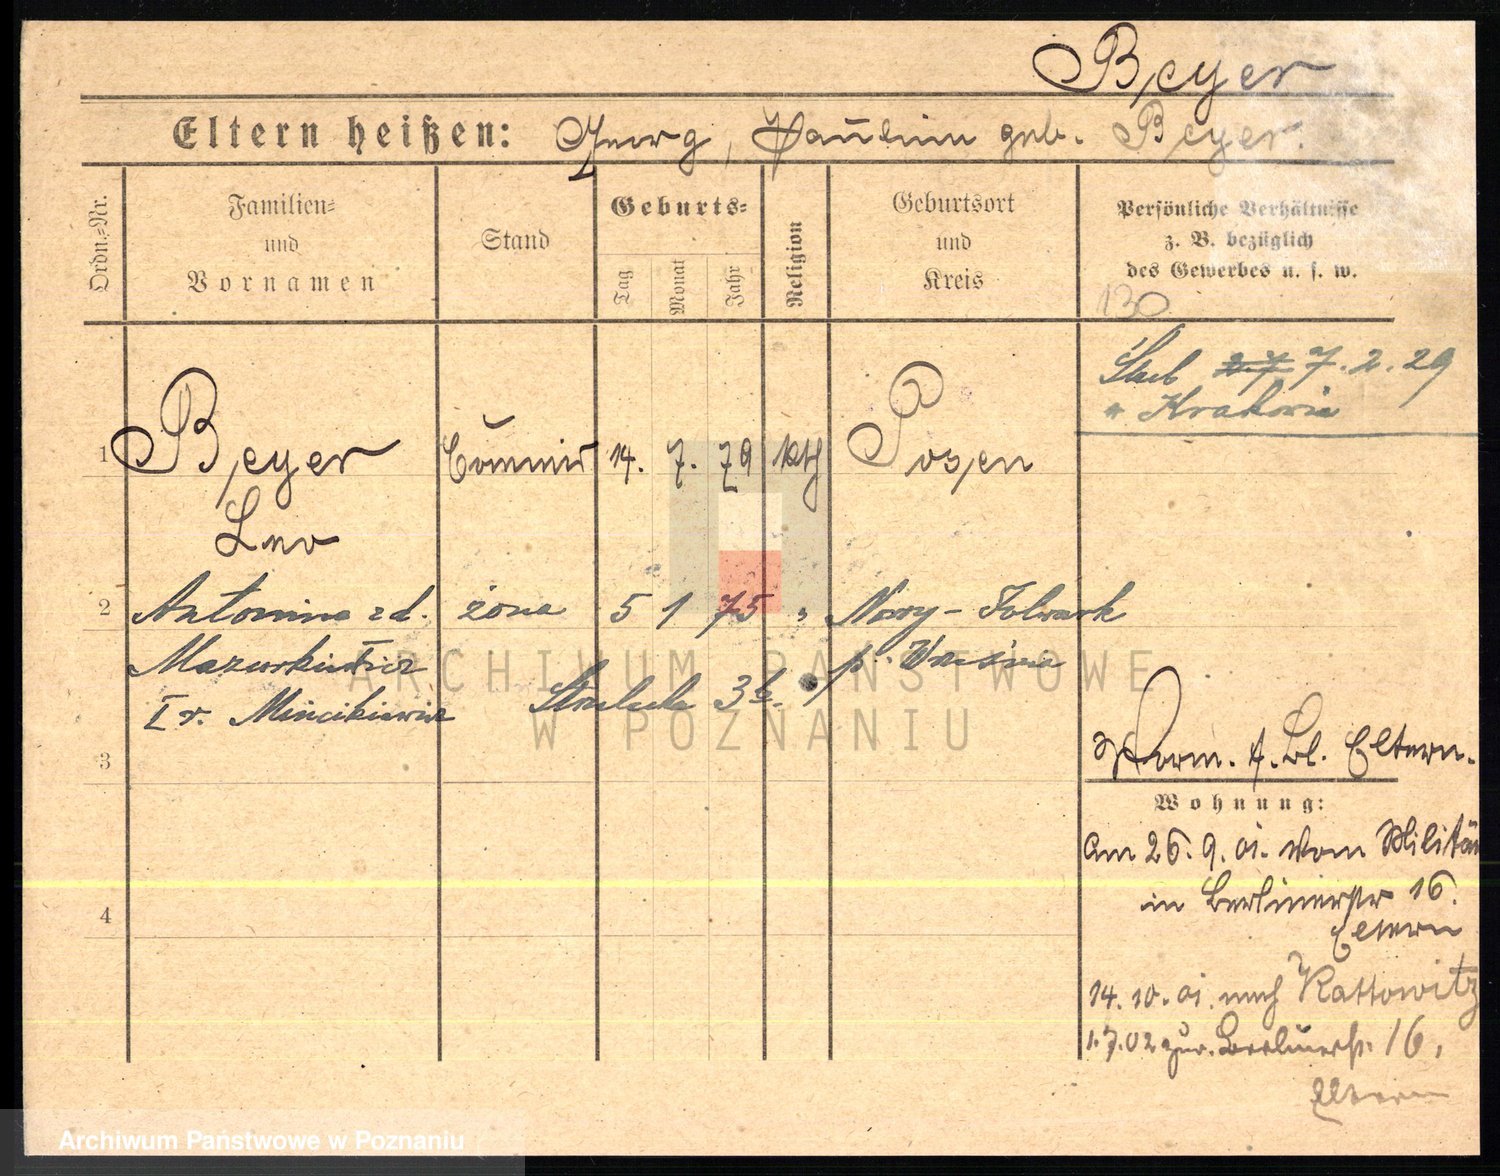 Beyer
Eltern heißen: Georg, Pauline geb. Beyer.
Ordn.-Nr.
Familien- und Vornamen
Stand
Geburts-
Tag Monat Jahr
Religion
Geburtsort und Kreis
Persönliche Verhältnisse
z. B. bezüglich
des Gewerbes u. s. w.
130
Ślub 2.7 7.2.29
w Krakowie
1 Beyer Commis 14. 7. 79 kth Posen
Leo
2 Antonina zd. żona 5 1 75 " Nowy-Folwark
Mazurkiewicz p. Września
I v. Strzelecka 3b.
3
Norm. A. Bl. Eltern.
Wohnung:
Am 26.9.01. vom Militär
in Berlinerstr 16.
Eltern
4
14.10.01. nach Kattowitz
1.7.02 zur. Berlinerstr. 16,
Eltern
ARCHIWUM PAŃSTWOWE
W POZNANIU
Archiwum Państwowe w Poznaniu